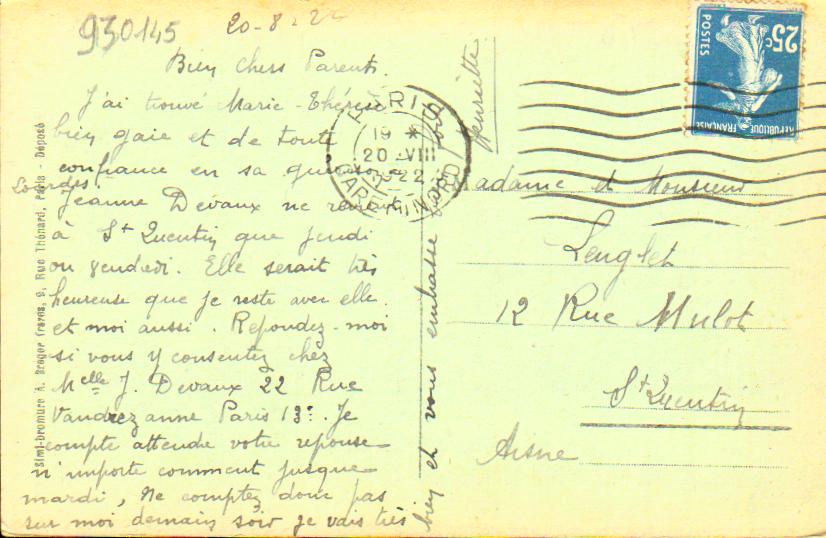 930145
20-8-22
Bien Chers Parents.
J'ai trouvé Marie-Thérèse
bien gaie et de toute
confiance en sa guérison
Lourdes!
Jeanne Devaux ne
à St Quentin que jeudi
ou vendredi. Elle serait très
heureuse que je reste avec elle.
et moi aussi. Repondez-moi
si vous y consentez chez
Melle J. Devaux 22 Rue
Vandrezanne Paris 13e. Je
compte attendre votre reponse
n'importe comment jusque
mardi, Ne comptez donc pas
sur moi demain soir je vais très
bien et vous embrasse
Henriette
Madame et Monsieur
Lenglet
12 Rue Mulot
St Quentin
Aisne
PARIS
19 *
20 -VIII
22
GARE
25c
POSTES
REPUBLIQUE FRANÇAISE
Simi-bromure A. Breger frères, 9, Rue Thénard, Paris - Déposé